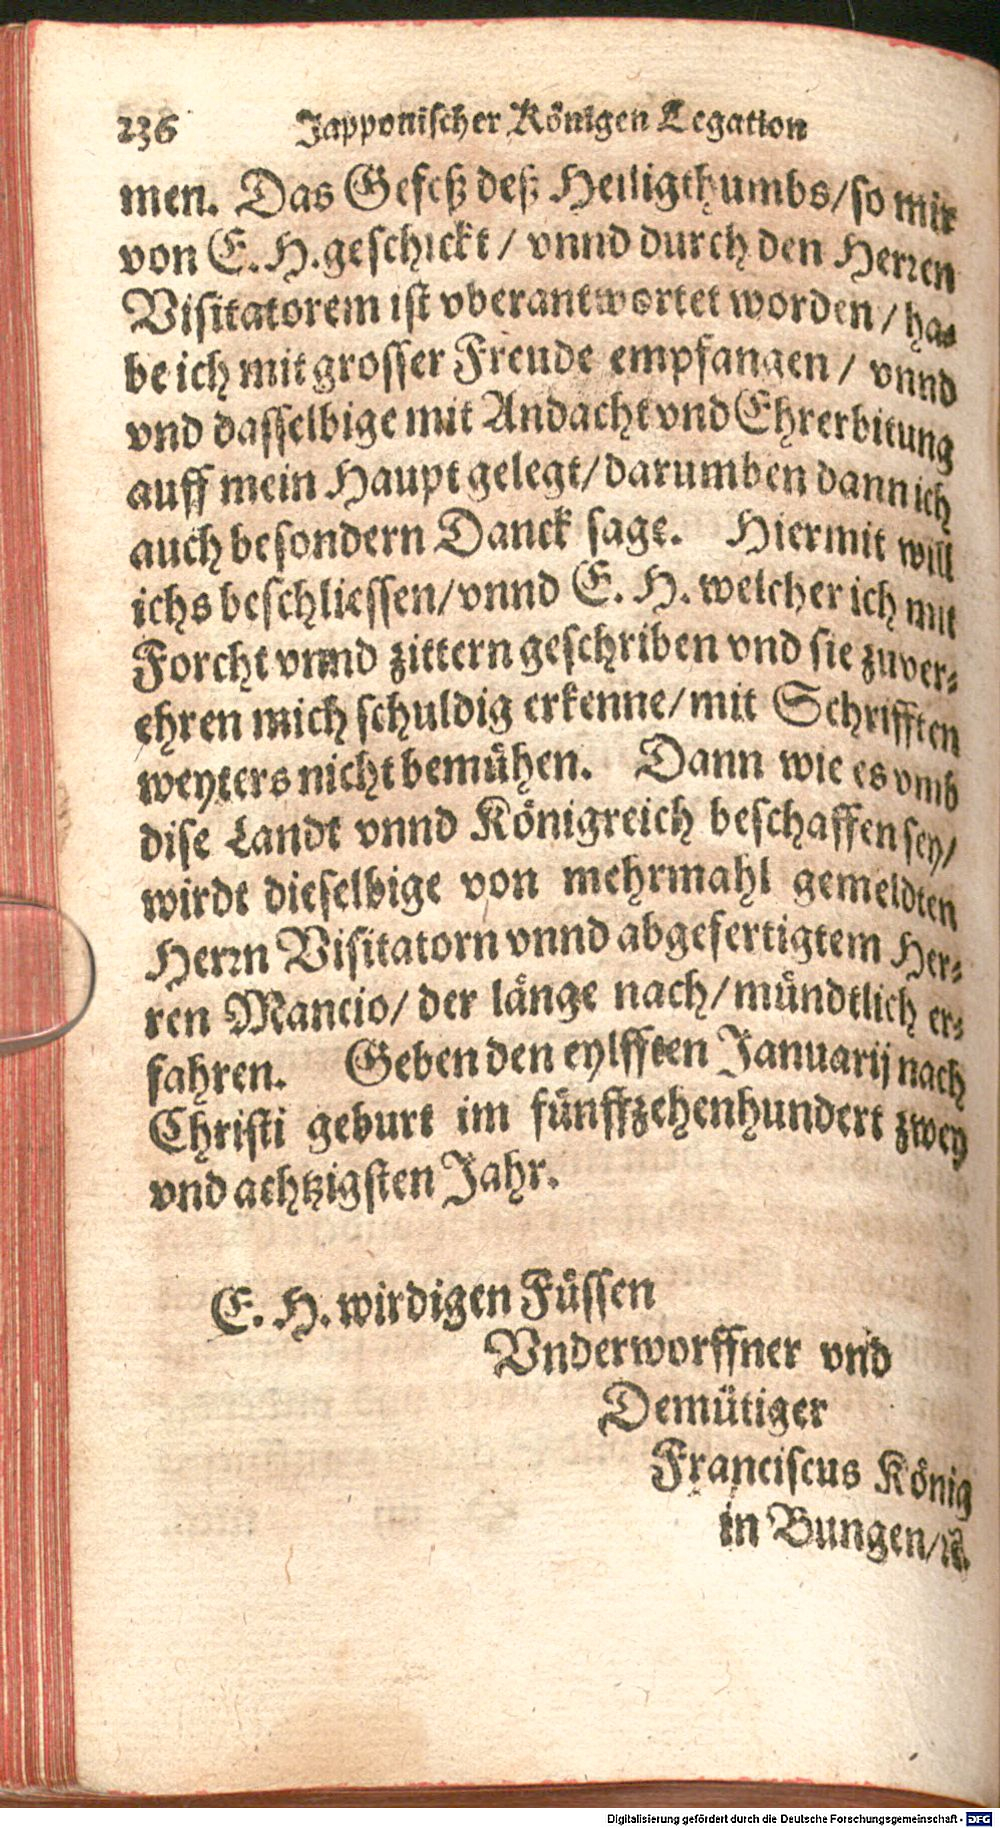 236 Japponischer Königen Legation
men. Das Gefeß deß Heiligthumbs/so mir
von E. H. geschickt / vnnd durch den Herren
Visitatorem ist vberantwortet worden / ha-
be ich mit grosser Freude empfangen / vnnd
vnd dasselbige mit Andacht vnd Ehrerbitung
auff mein Haupt gelegt/darumben dann ich
auch besondern Danck sage. Hiermit will
ichs beschliessen/vnnd E. H. welcher ich mit
Forcht vnnd zittern geschriben vnd sie zuver-
ehren mich schuldig erkenne/mit Schrifften
weyters nicht bemühen. Dann wie es vmb
dise Landt vnnd Königreich beschaffen sey/
wirdt dieselbige von mehrmahl gemeldten
Herrn Visitatorn vnnd abgefertigtem Her-
ren Mancio/ der länge nach/mündtlich er-
fahren. Geben den eylfften Januarij nach
Christi geburt im fünffzehenhundert zwey
vnd achtzigsten Jahr.
E. H. wirdigen Füssen
Vnderworffner vnd
Demütiger
Franciscus König
in Bungen/ꝛc.
Digitalisierung gefördert durch die Deutsche Forschungsgemeinschaft - DFG